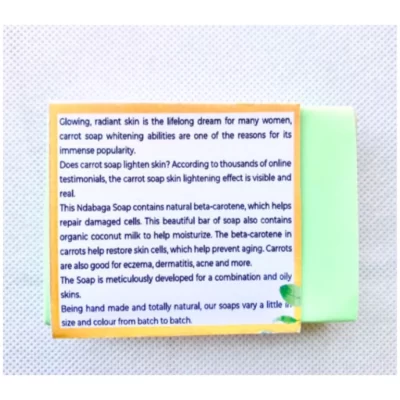 Glowing, radiant skin is the lifelong dream for many women,
carrot soap whitening abilities are one of the reasons for its
immense popularity.
Does carrot soap lighten skin? According to thousands of online
testimonials, the carrot soap skin lightening effect is visible and
real.
This Ndabaga Soap contains natural beta-carotene, which helps
repair damaged cells. This beautiful bar of soap also contains
organic coconut milk to help moisturize. The beta-carotene in
carrots help restore skin cells, which help prevent aging. Carrots
are also good for eczema, dermatitis, acne and more.
The Soap is meticulously developed for a combination and oily
skins.
Being hand made and totally natural, our soaps vary a little in
size and colour from batch to batch.